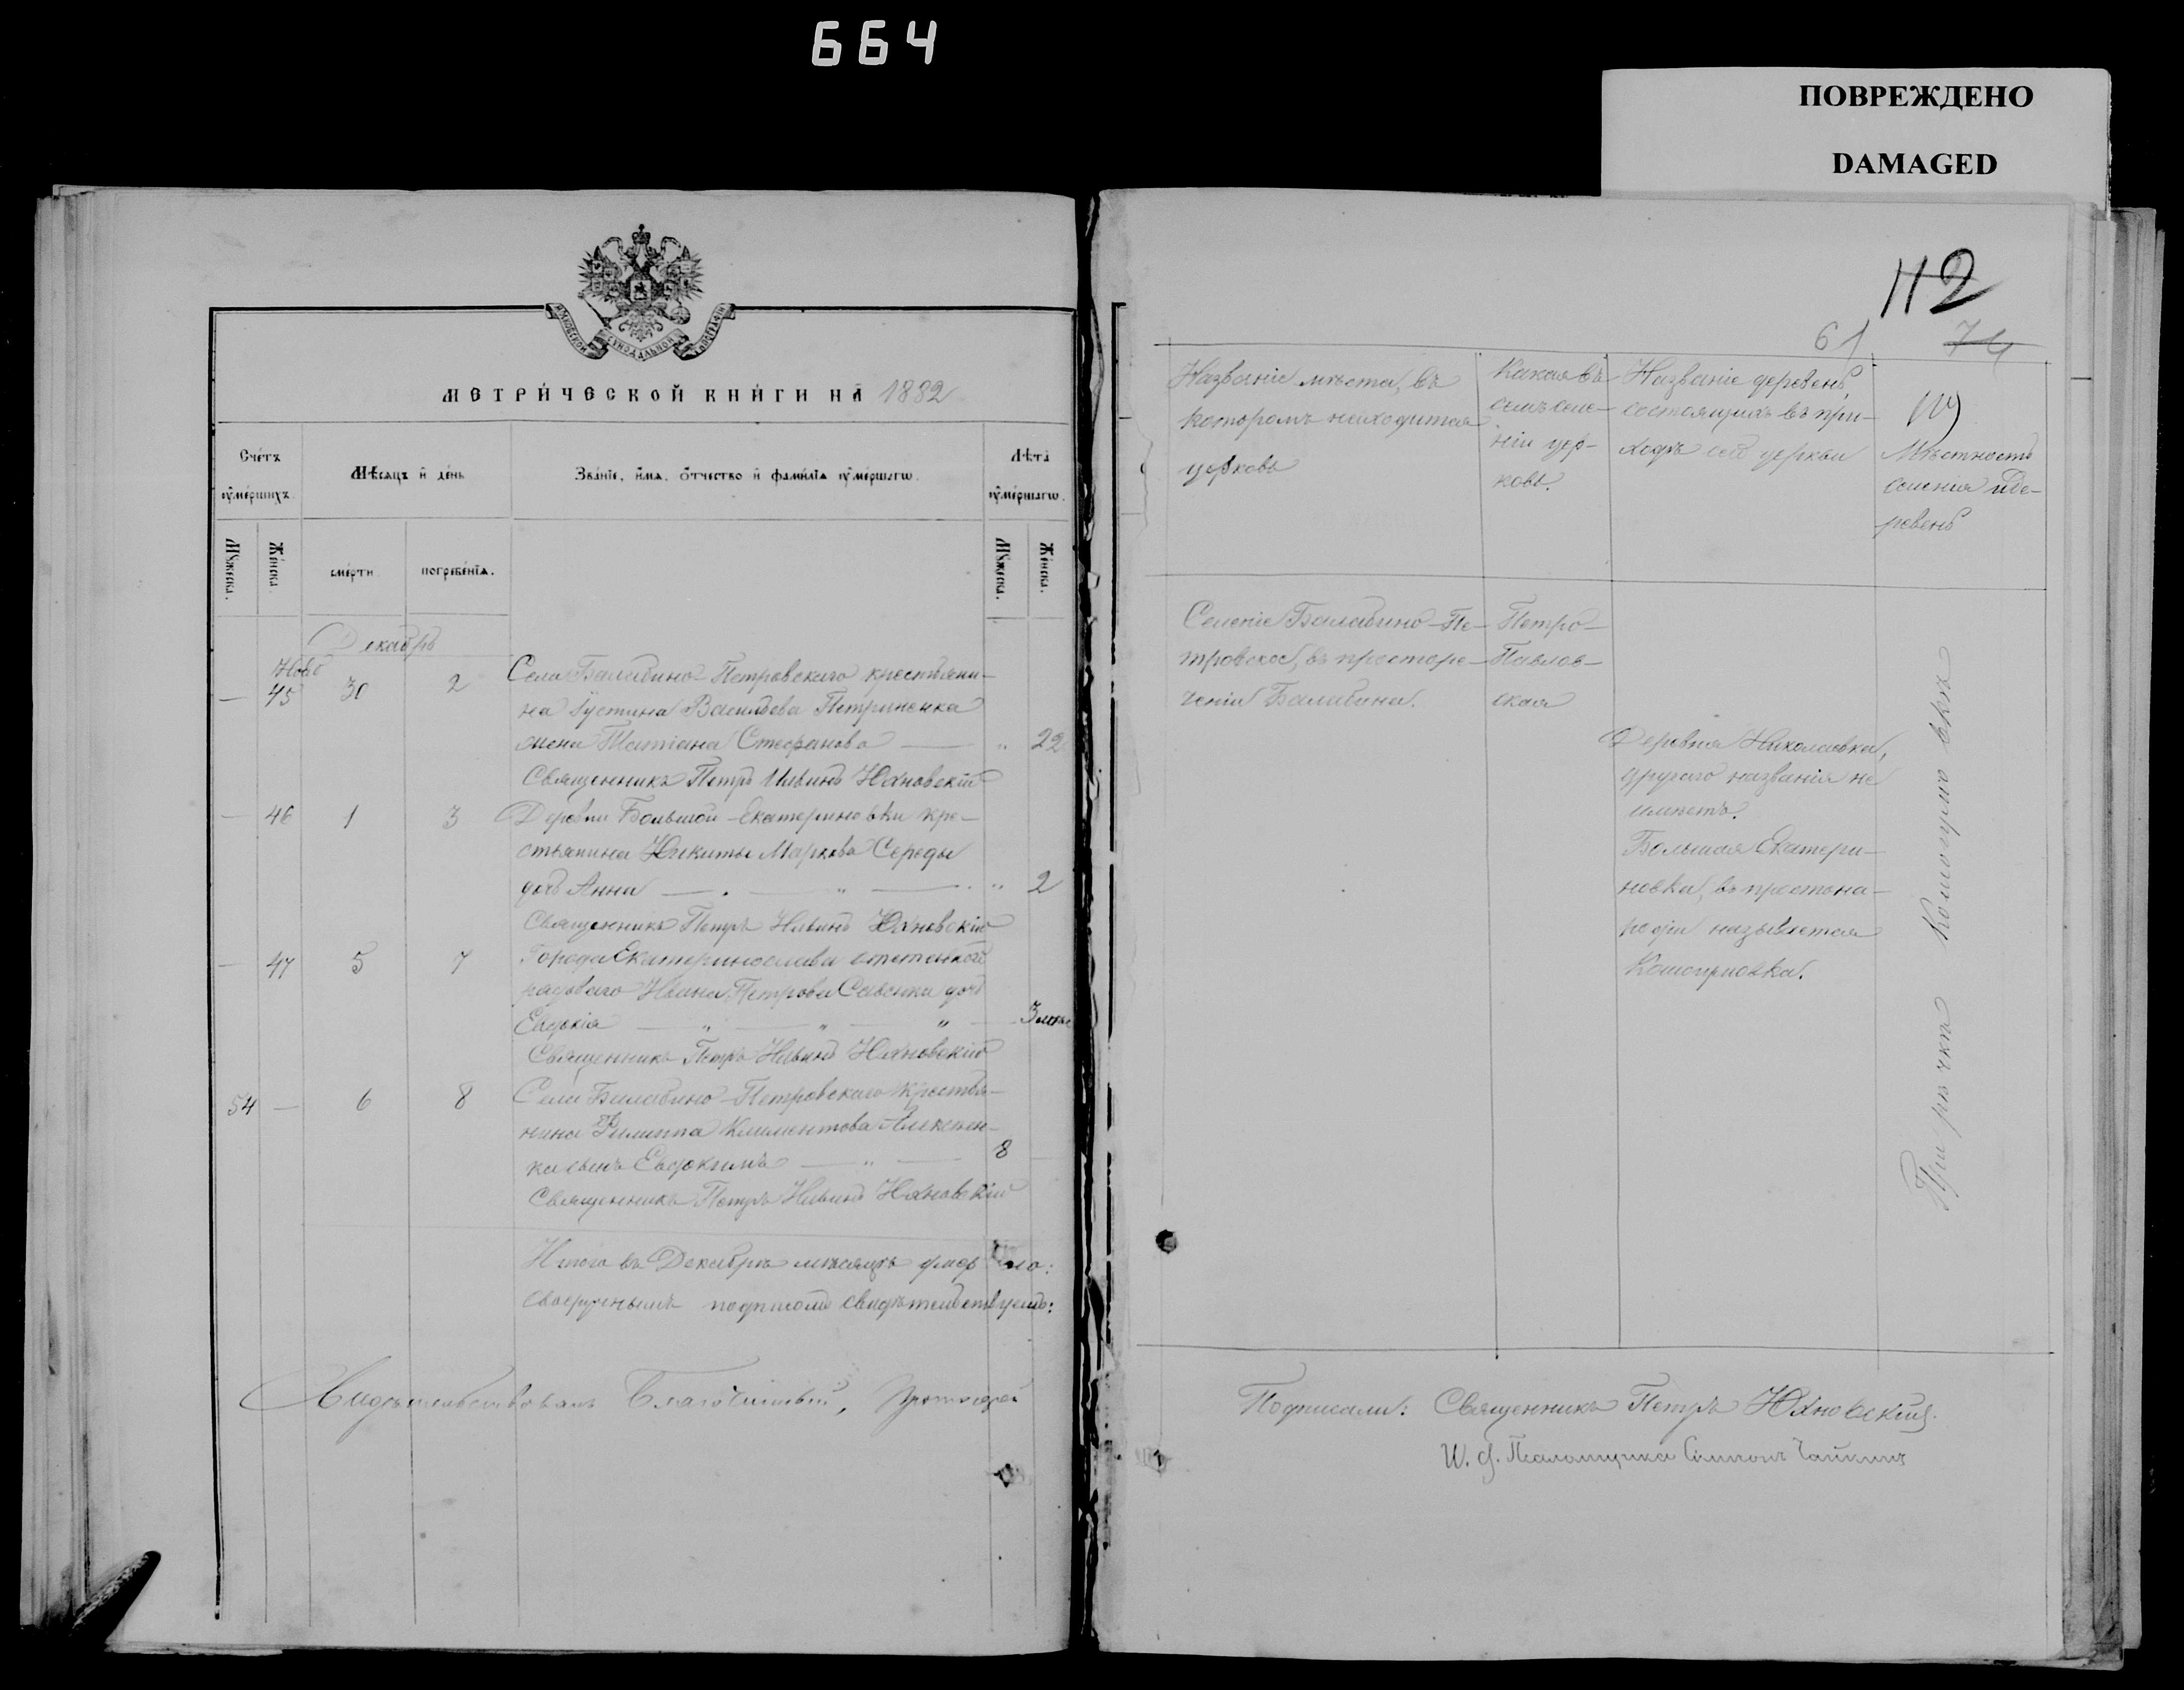 664
ПОВРЕЖДЕНО
DAMAGED
МЕТРИЧЕСКОЙ КНИГИ НА 1882
Счетъ умершихъ.
Мѣсяцъ и день
Званіе, имя, отчество и фамилія умершагѡ.
Лѣта умершагѡ.
Мужеска.
Женска.
смерти
погребенія.
Мужеска.
Женска.
Декабрь
Нояб
— 45 30 2 Села Балабино-Петровскаго крестьяни-
на Іустина Васильева Петриненка
жена Татіана Стефанова — " 22
Священникъ Петръ Ильинъ Юхновскій
— 46 1 3 Деревни Большой-Екатериновки кре-
стьянина Никиты Маркова Середы
дочь Анна — " — " 2
Священникъ Петръ Ильинъ Юхновскій
— 47 5 7 Города Екатеринослава
рядоваго Ивана Петрова Савенка дочь
Евдокія — " — " — " — 3 мѣс
Священникъ Петръ Ильинъ Юхновскій
54 — 6 8 Села Балабино-Петровскаго крестья-
нина Филиппа Климентова Алексѣен-
ка сынъ Евдокимъ — " — 8 —
Священникъ Петръ Ильинъ Юхновскій
Итого въ Декабрѣ мѣсяцѣ умерло:
подписомъ свидѣтельствуемъ:
Свидѣтельствовалъ Благочинный, Протоіерей
112
61
74
Названіе мѣста, въ
которомъ находится
церковь
Какая въ
семъ селе-
ніи цер-
ковь.
Названіе деревень,
состоящихъ въ при-
ходѣ сей церкви
Мѣстность
селенія и де-
ревень
Селеніе Балабино-Пе-
тровское, въ просторе-
чіи Балабина.
Петро-
Павлов-
ская
Деревня Николаевка,
другаго названія не
имѣетъ.
Большая Екатери-
новка, въ простона-
родіи называется
Кошогумовка.
При рѣчкѣ Кошогумъ
Подписали: Священникъ Петръ Юхновскій.
И. д. Псаломщика Симеонъ Чайкинъ